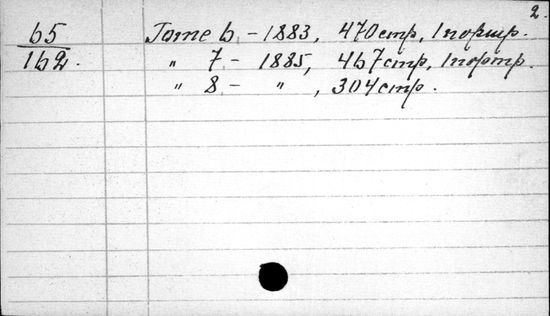 2.
65 Tome 6 - 1883, 470 стр, 1 портр.
162. " 7 - 1885, 467 стр, 1 портр.
" 8 - " , 304 стр.